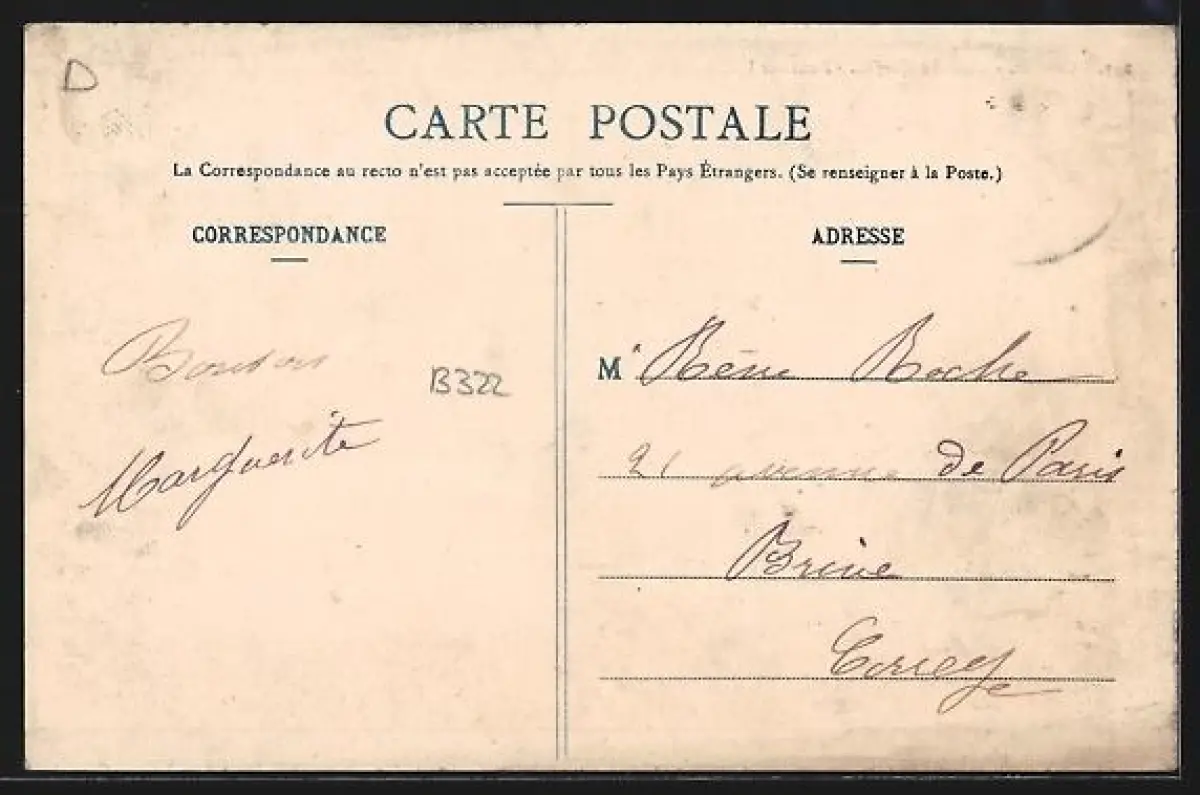 D
CARTE POSTALE
La Correspondance au recto n'est pas acceptée par tous les Pays Étrangers. (Se renseigner à la Poste.)
CORRESPONDANCE
ADRESSE
Marguerite
B322
M Réné Roche
21 avenue de Paris
Brive
Corrèze